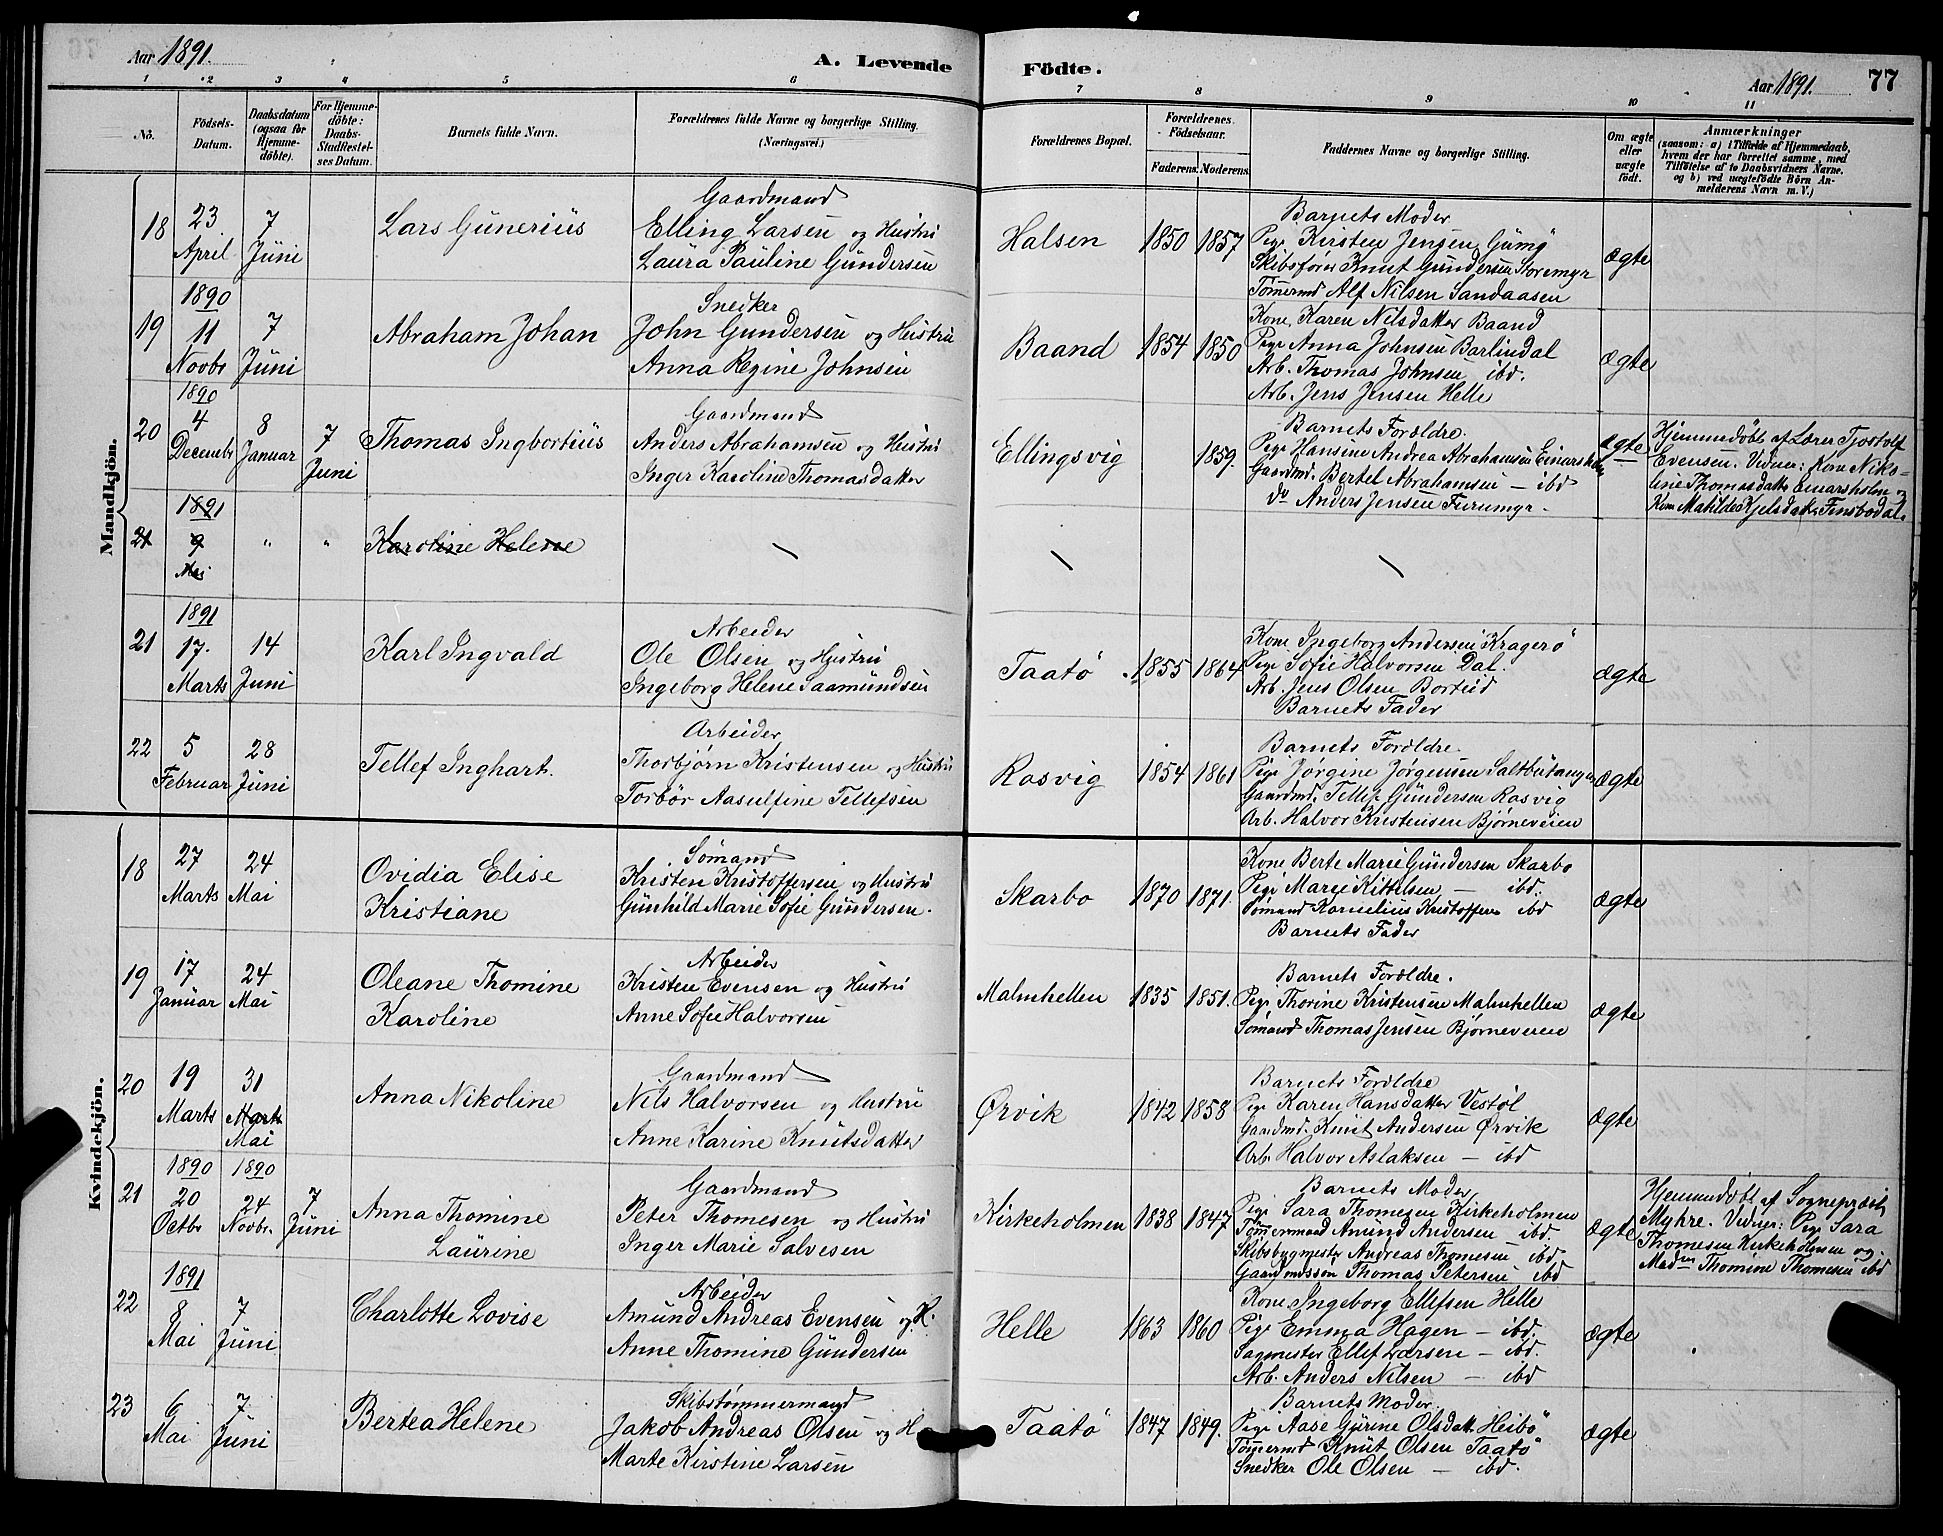 Aar 1891. A. Levende Födte. Aar 1891. 77
1 2 3 4 5 6 7 8 9 10 11
No.
Födsels-Datum.
Daabsdatum (ogsaa for Hjemme-döbte).
For Hjemme-döbte: Daabs-Stadfestel-ses Datum.
Barnets fulde Navn.
Forældrenes fulde Navne og borgerlige Stilling. (Næringsvei.)
Forældrenes Bopæl.
Forældrenes Födselsaar.
Faderens. Moderens.
Faddernes Navne og borgerlige Stilling.
Om ægte eller uægte födt.
Anmærkninger
(saasom: a) i Tilfælde af Hjemmedaab,
hvem der har forrettet samme, med
Tilföielse af to Daabsvidners Navne.
og b) ved uægtefödte Börn An-
melderens Navn m. V.)
Mandkjön.
18 23 April 7 Juni
Lars Gunerius
Gaardmand
Elling Larsen og Hustru
Laura Pauline Gundersen
Halsen 1850 1857
Barnets Moder
Pige Kirsten Jensen Gumø
Skibsfører Knut Gundersen Storemyr
Tømermd Alf Nilsen Sandaasen
ægte
19 1890 11 Novbr 7 Juni
Abraham Johan
Snedker
John Gundersen og Hustru
Anna Regine Johnsen
Baand 1854 1850
Kone Karen Nilsdatter Baand
Pige Anna Johnsen Barlindal
Arb. Thomas Johnsen ibd.
Arb. Jens Jensen Helle
ægte
20 1890 4 Decembr 8 Januar 7 Juni
Thomas Ingbortius
Gaardmand
Anders Abrahamsen og Hustru
Inger Karoline Thomasdatter
Ellingsvig 1859.
Barnets Forældre.
Pige Hansine Andrea Abrahamsen Einarsholm
Gaardmd. Bertel Abrahamsen — ibd
do Anders Jensen Furumyr.
ægte
Hjemmedøbt af Lærer Tjostolf
Evensen. Vidner: Kone Niko-
line Thomasdatter Einarsholm og
Kone Mathilde Kjelsdatter Finsbodal.
21 1891 9 Mai " "
Karoline Helene
21 1891 17. Marts 14 Juni
Karl Ingvald
Arbeider
Ole Olsen og Hustru
Ingeborg Helene Saamundsen
Taatø 1855 1864
Kone Ingeborg Andersen Kragerø
Pige Sofie Halvorsen Dal.
Arb. Jens Olsen Borteid
Barnets Fader
ægte
22 5 Februar 28 Juni
Tellef Inghart.
Arbeider
Thorbjørn Kristensen og Hustru
Torbør Aasulfine Tellefsen
Rosvig 1854 1861
Barnets Forældre.
Pige Jørgine Jørgensen Saltbutangen
Gaardmd. Tellef Gundersen Rosvig
Arb. Halvor Kristensen Bjørneveien
ægte
Kvindekjön.
18 27 Marts 24 Mai
Ovidia Elise
Kristiane
Sømand
Kristen Kristoffersen og Hustru
Gunhild Marie Sofie Gundersen.
Skarbo 1870 1871.
Kone Berte Marie Gundersen Skarbo
Pige Marie Kittelsen — ibd.
Sømand Kornelius Kristoffersen ibd
Barnets Fader
ægte
19 17 Januar 24 Mai
Oleane Thomine
Karoline
Arbeider
Kristen Evensen og Hustru
Anne Sofie Halvorsen
Malmhellen 1835 1851.
Barnets Forældre.
Pige Thorine Kristensen Malmhellen
Sømand Thomas Jensen Bjørneveien
ægte
20 19 Marts 31 Marts Mai
Anna Nikoline
Gaardmand
Nils Halvorsen og Hustru
Anne Karine Knutsdatter
Ørvik 1842 1858
Barnets Forældre
Pige Karen Hansdatter Vestøl
Gaardmd. Knut Andersen Ørvik
Arb. Halvor Aslaksen — ibd
ægte
21 1890 20 Octbr 1890 24 Novbr. 7 Juni
Anna Thomine
Laurine
Gaardmand
Peter Thomesen og Hustru
Inger Marie Salvesen
Kirkeholmen 1838 1847
Barnets Moder
Pige Sara Thomesen Kirkeholmen
Tømmermand Amund Andersen ibd.
Skibsbygmester Andreas Thomesen ibd
Gaardmandssøn Thomas Petersen ibd
ægte
Hjemmedøbt af Sognepræst
Myhre. Vidner: Pige Sara
Thomesen Kirkeholmen og
Madm Thomine Thomesen ibd
22 1891 8 Mai 7 Juni
Charlotte Lovise
Arbeider
Amund Andreas Evensen og H.
Anne Thomine Gundersen
Helle 1863 1860
Kone Ingeborg Ellefsen Helle
Pige Emma Hagen — ibd.
Sagmester Ellef Larsen — ibd.
Arb. Anders Nilsen — ibd
ægte
23 6 Mai 7 Juni
Bertea Helene
Skibstømmermand
Jakob Andreas Olsen og H
Marte Kirstine Larsen
Taatø 1847 1849.
Barnets Moder.
Pige Aase Gurine Olsdatt. Heibø
Tømermd Knut Olsen Taatø
Snedker Ole Olsen — ibd.
ægte